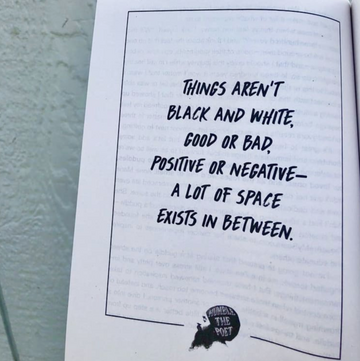 THINGS AREN'T
BLACK AND WHITE,
GOOD OR BAD,
POSITIVE OR NEGATIVE—
A LOT OF SPACE
EXISTS IN BETWEEN.
HUMBLE
THE
POET